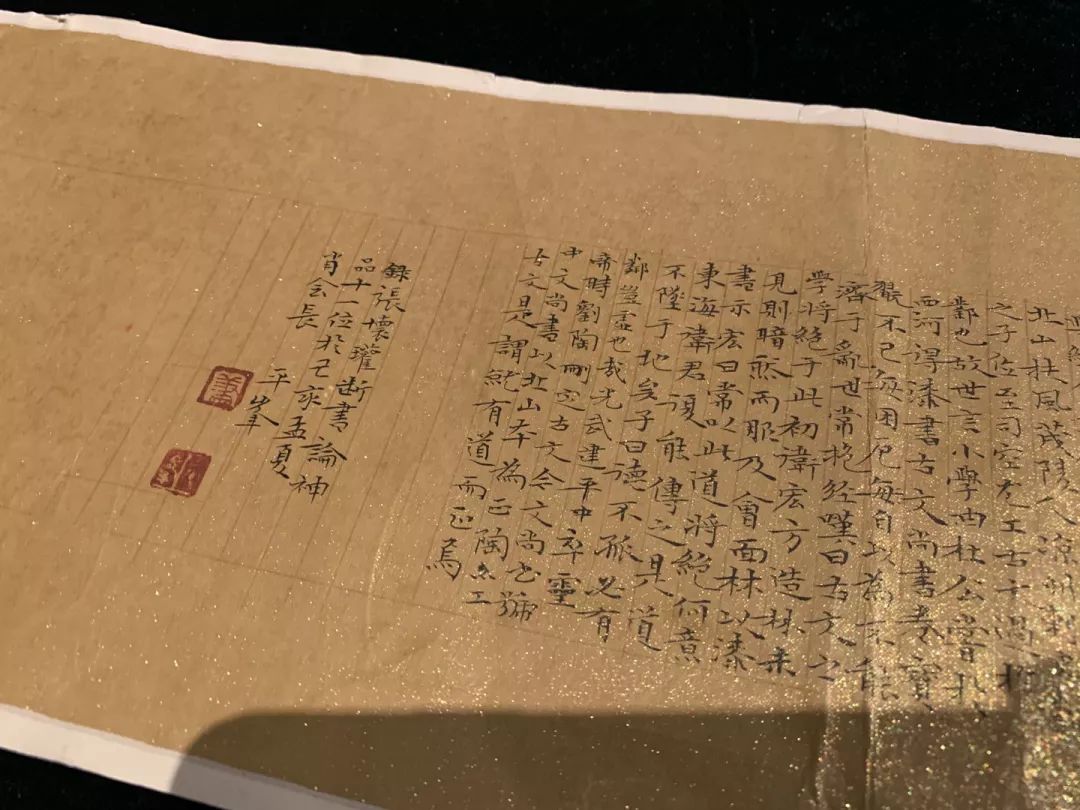 北山扶風茂陵人涼州刺
之子位至司空尤工古文過於
鄴也故世言小學由杜公嘗於
西河得漆書古文尚書卷寶
翫不已每困厄每自以為不能
濟于亂世常抱經嘆曰古文之
學將絕于此初衛宏方造林未
見則暗然而服及會面林以漆
書示宏曰常以此道將絕何意
東海衛君復能傳之是道
不墜于地矣子曰德不孤必有
鄰豈虛也哉光武建平中卒靈
帝時劉陶刪定古文今文尚書號
中文尚書以北山本為正陶亦工
古文是謂就有道而正焉
錄張懷瓘断書論神
品十一位於己亥孟夏
肖会長
平峯